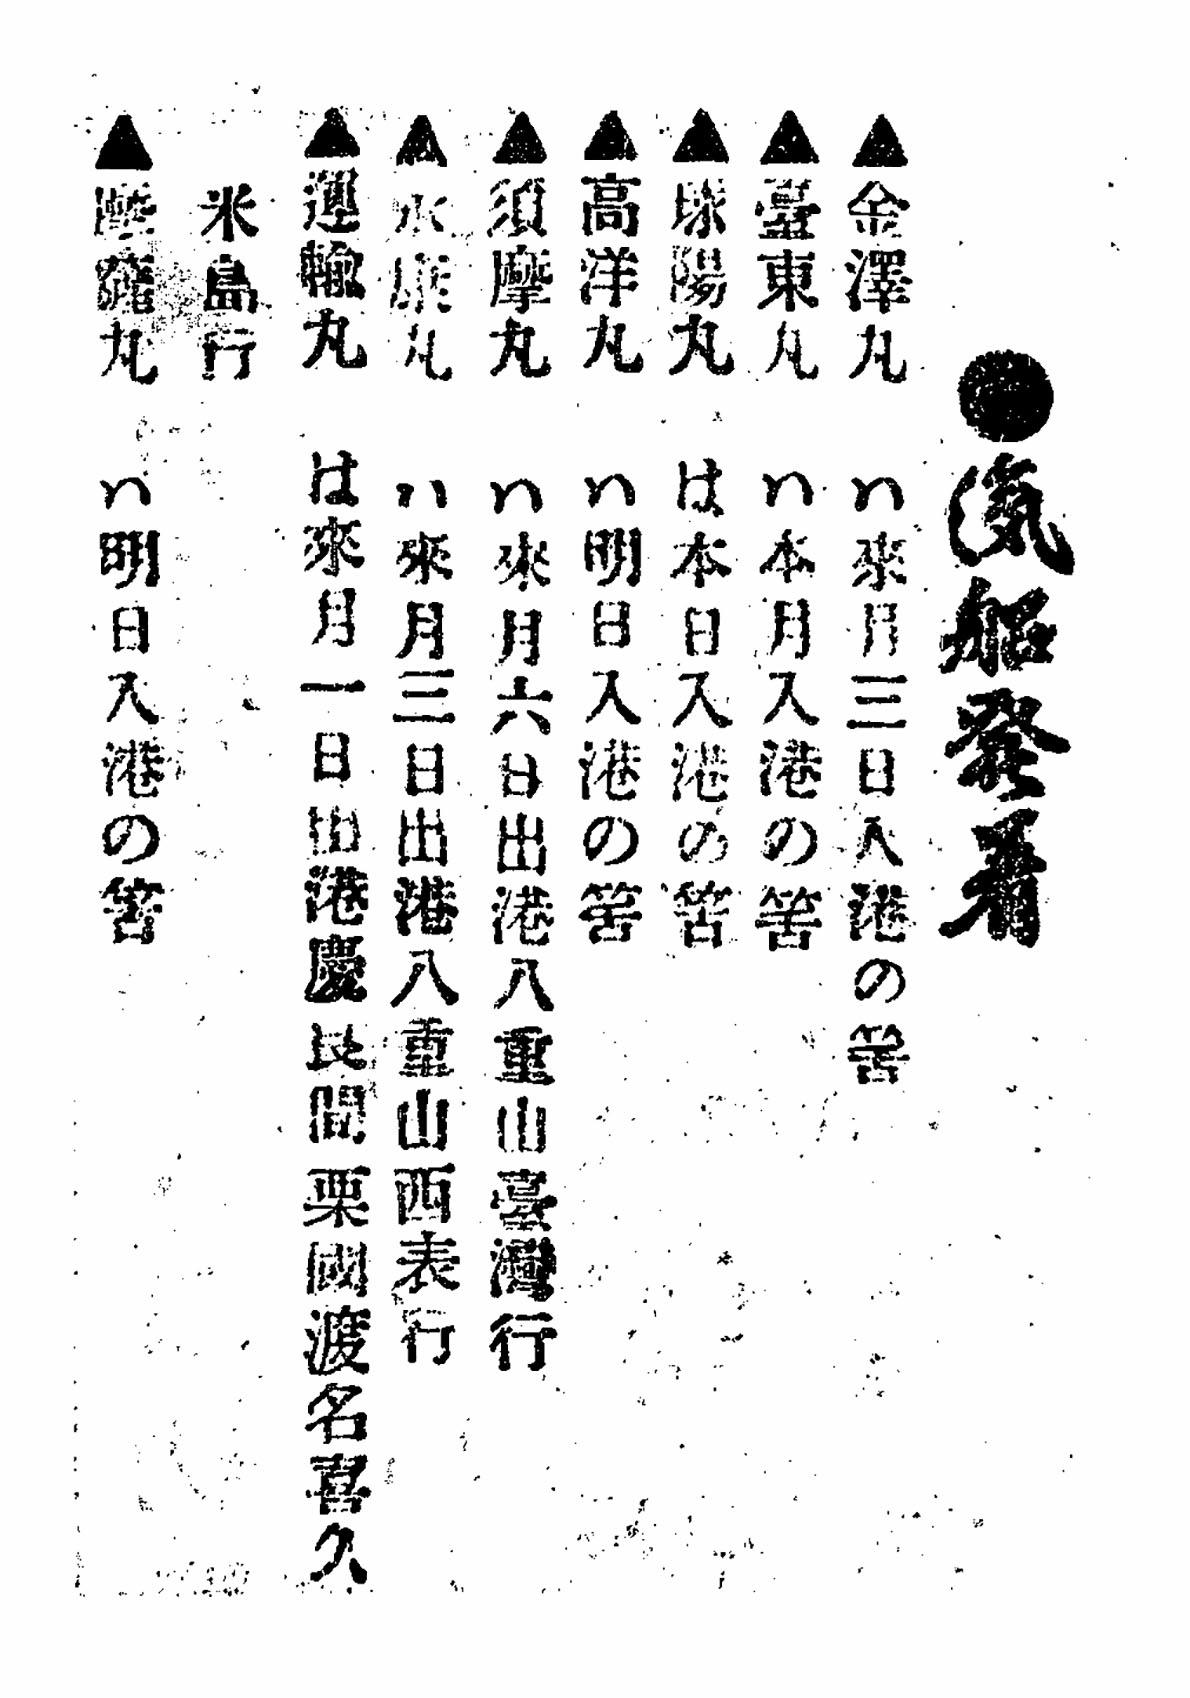 ●汽船發着
▲金澤丸 ハ來月三日入港の筈
▲臺東丸 ハ本月入港の筈
▲球陽丸 は本日入港の筈
▲高洋丸 ハ明日入港の筈
▲須摩丸 ハ來月六日出港八重山臺灣行
▲永康丸 ハ來月三日出港八重山西表行
▲運輸丸 は來月一日出港慶良間粟國渡名喜久
米島行
▲丸 ハ明日入港の筈